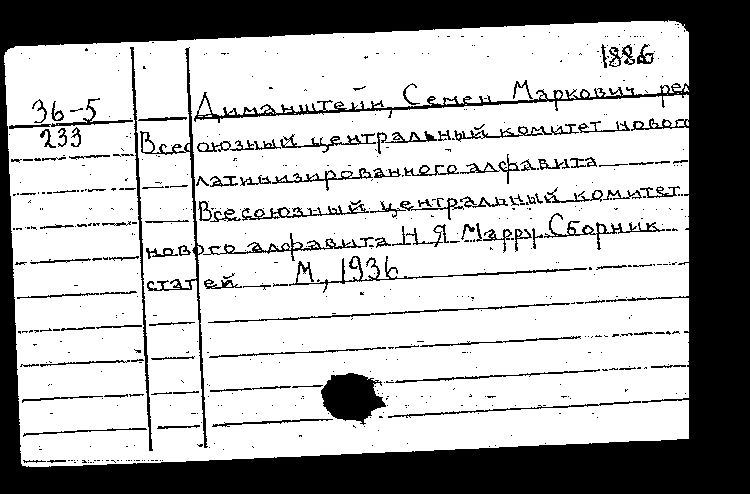 1886
36-5
233
Диманштейн, Семен Маркович ред
Всесоюзный центральный комитет нового
латинизированного алфавита
Всесоюзный центральный комитет
нового алфавита Н. Я Марру. Сборник
статей М., 1936.